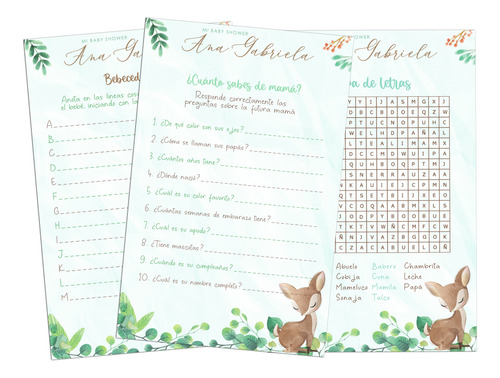 MI BABY SHOWER
Ana Gabriela
¿Cuánto sabes de mamá?
Responde correctamente las
preguntas sobre la futura mamá
1. ¿De qué color son sus ojos?
2. ¿Cómo se llaman sus papás?
3. ¿Cuántos años tiene?
4. ¿Dónde nació?
5. ¿Cuál es su color favorito?
6. ¿Cuántas semanas de embarazo tiene?
7. ¿Cuál es su
8. ¿Tiene mascotas?
9. ¿Cuándo es su cumpleaños?
10. ¿Cuál es su nombre completo?
Ana Ga
Bebeced
Anota en las líneas cos
el bebé, iniciando con la
A
B
C
D
E
F
G
H
I
J
K
L
M
Gabriela
a de Letras
Y Y I J A S M G X J
D B C B D O E Q Z
P T U C N O P U H C
W E L H D P A Ñ A L
L T E A L I M A M X
D C C M D W U I P A
Q U H B O Q P T M J
S N E R R A U Z A A
K A U I E J C P M N
Q T S E T B I J X E
V C O Q A A B M X L S
J Q D P Y B O O B U E
K T V W Ñ C M F C W
Ñ Ñ J V A Z B G G O X
C Z A C A B U E L O Ñ
Abuelo Babero Chambrita
Cobija Cuna Leche
Mameluco Mamila Papá
Sonaja Talco